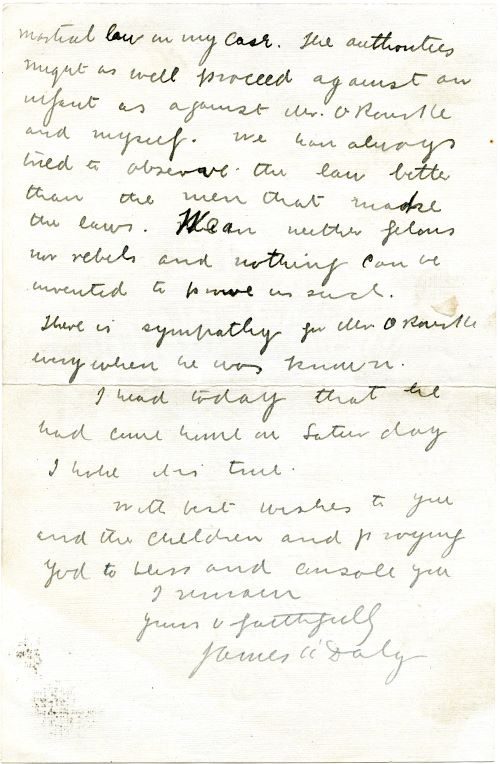 martial law in my case. The authorities
might as well proceed against an
infant as against Mr. O'Rourke
and myself. We have always
tried to observe the law better
than the men that make
the laws. We are neither felons
nor rebels and nothing can be
invented to prove us such.
There is sympathy for Mr. O'Rourke
everywhere he was known.
I heard today that he
had come home on Saturday
I hope it is true.
With best wishes to you
and the children and praying
God to bless and console you
I remain
yours faithfully
James O'Daly